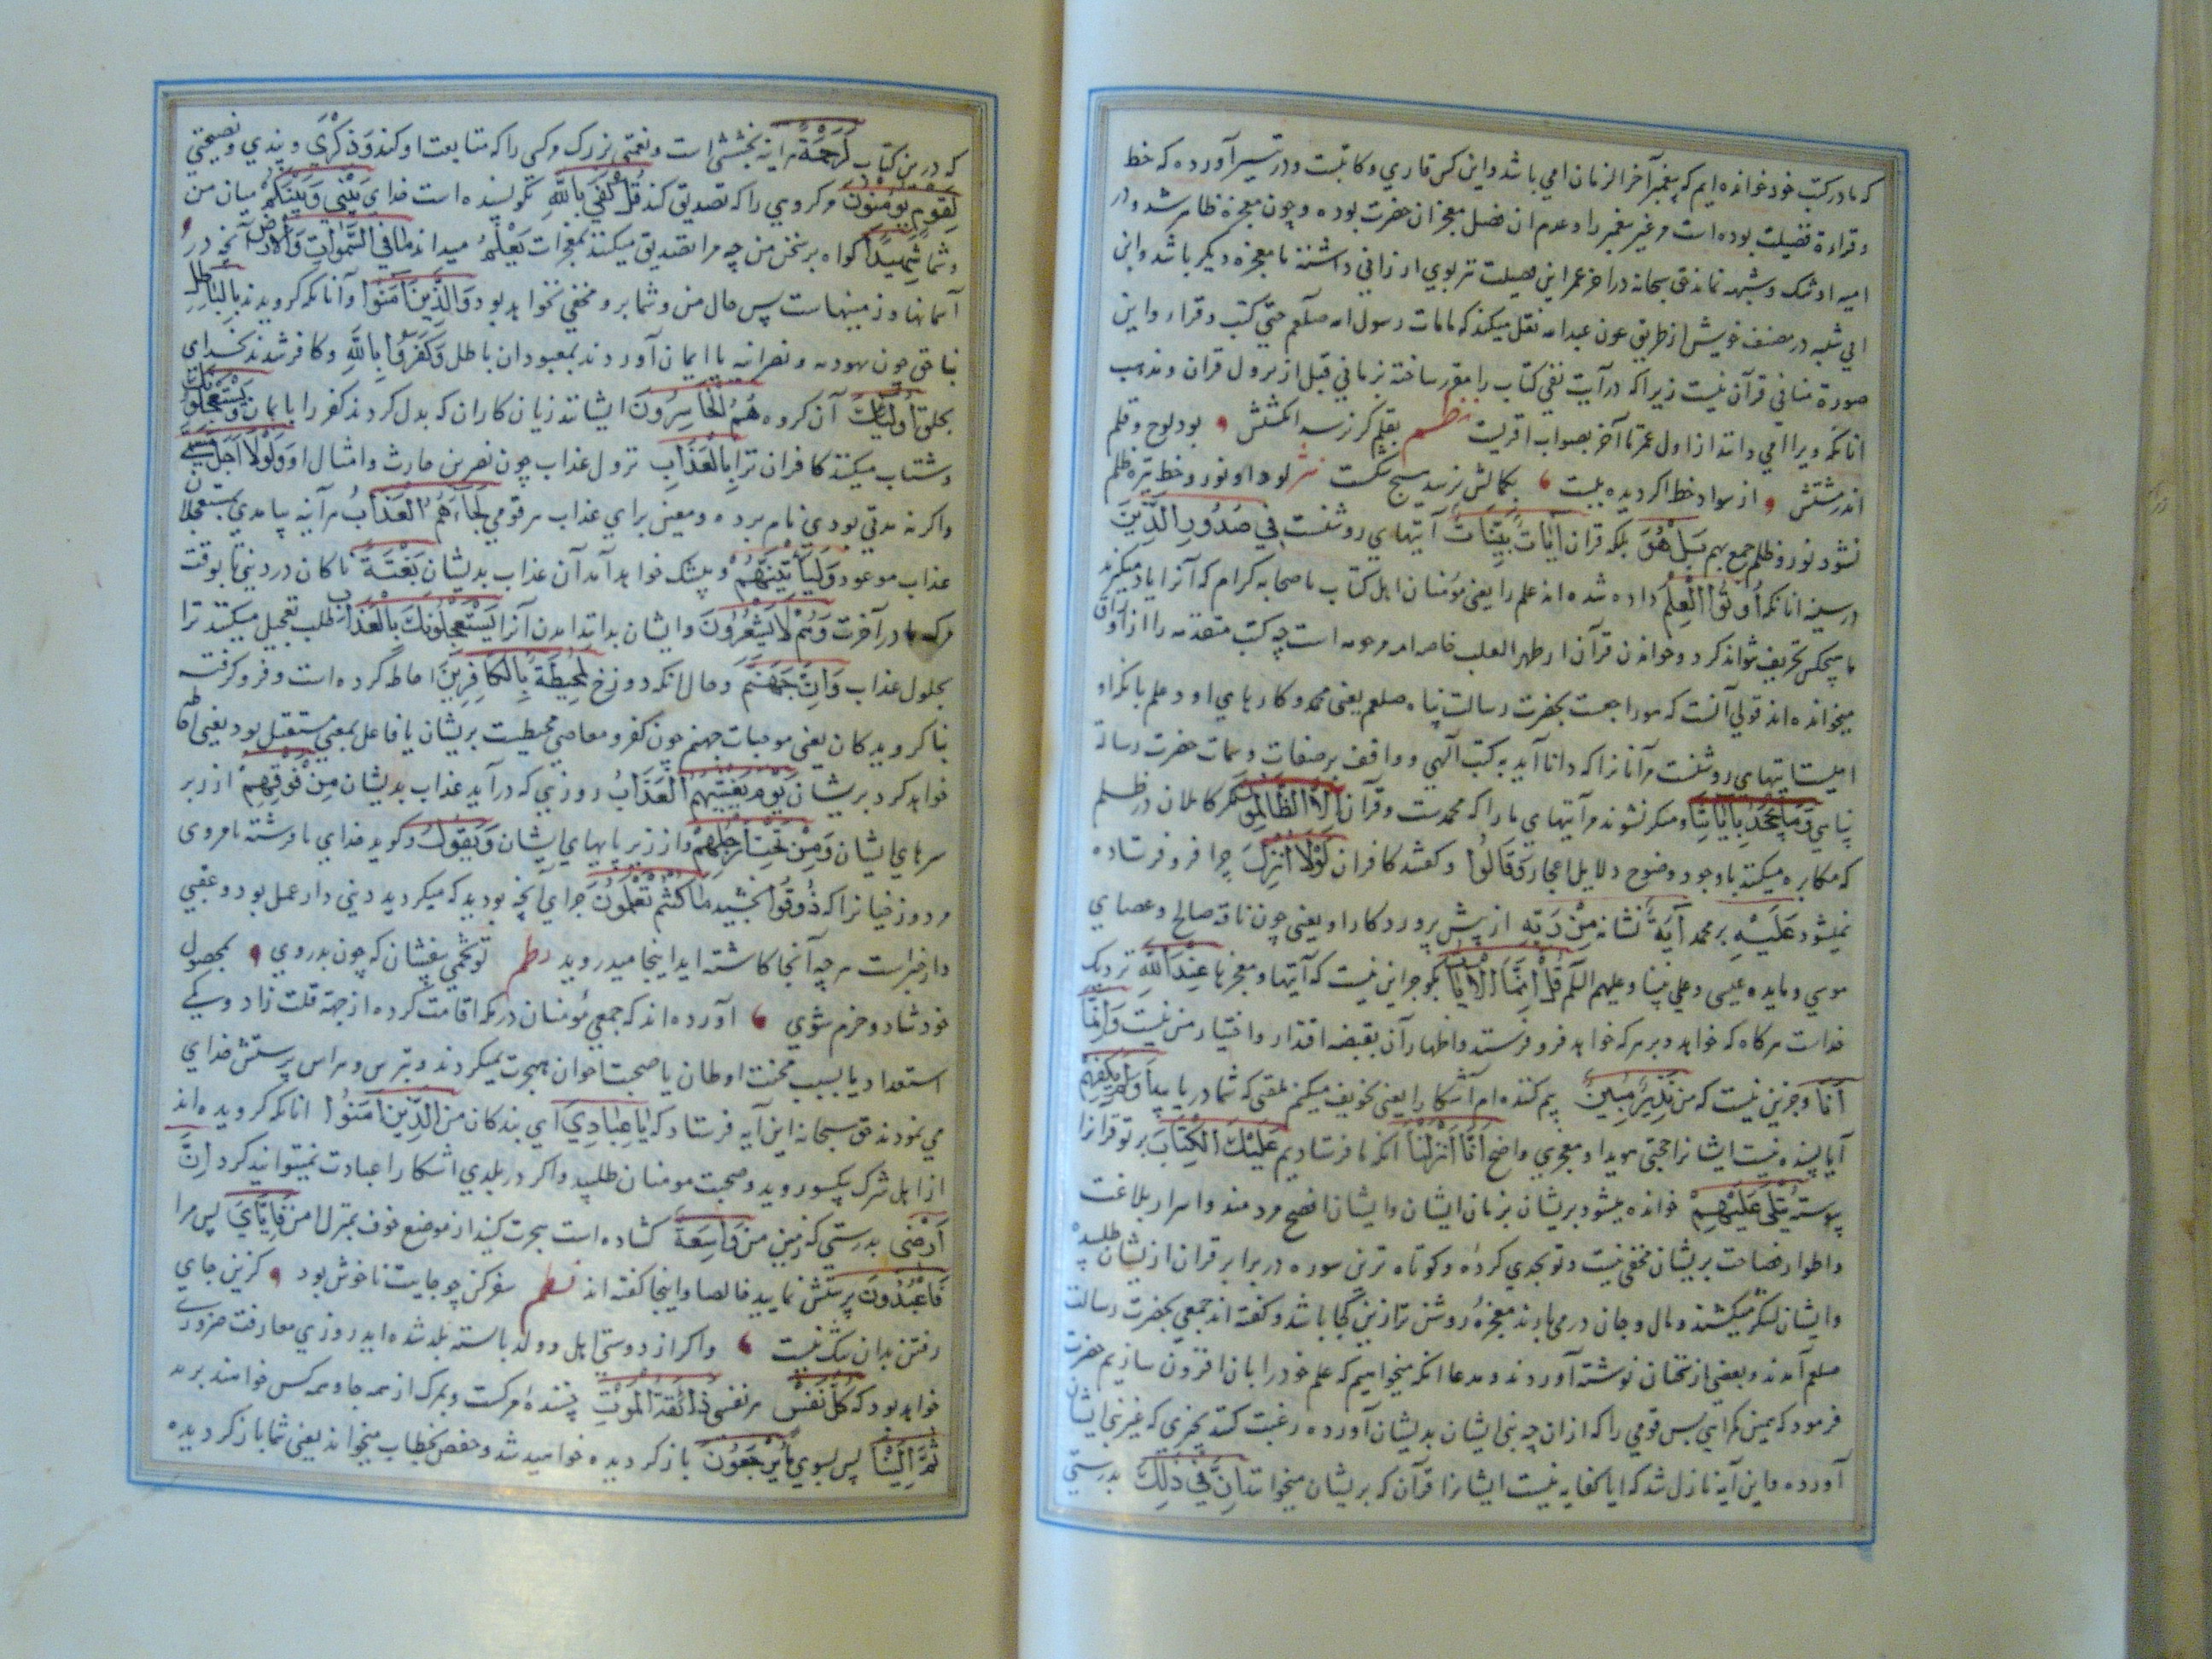 که ما در کتب خود خوانده ایم که پیغمبر آخر الزمان امی باشد و این کس قاری و کاتبست و در تیسیر آورده که خط
و قراءة فضیلت بوده است مر غیر پیغمبر را و عدم ان فضل معجز ان حضرت بوده و چون معجزه ظاهر شد و در
امیه او شک و شبهه نماند حق سبحانه در اخر عمر این فضیلت نیز بوی ارزانی داشته تا معجزه دیگر باشد و ابن
ابی شیبه در مصنف خویش از طریق عون عبد الله نقل میکند که ما مات رسول الله صلعم حتی کتب و قراء و این
صورة منافی قرآن نیست زیرا که در آیت نفی کتاب را مقرر ساخته بزمانی قبل از نزول قران و مذهب
انانکه ویرا امی دانند از اول عمر تا آخر بصواب اقربست نظم بقلم گر نرسد انگشتش بود لوح و قلم
اندر مشتش از سواد خط اگر دیده ببست بکمالش نرسد هیچ شکست نثر بود او نور و خط تیره ظلم
نشود نور و ظلم جمع بهم بَلْ هُوَ بلکه قران آیَاتٌ بَیِّنَاتٌ آیتهای روشنست فِي صُدُورِ الَّذِینَ
در سینه انانکه أُوتُوا الْعِلْمَ داده شده اند علم را یعنی مؤمنان اهل کتاب یا صحابه کرام که آنرا یاد میگیرند
تا هیچکس تحریف نتواند کرد و خواندن قرآن از ظهر القلب خاصه امه مرحومه است چه کتب متقدمه را از اوراق
میخوانده اند قولی آنست که هو راجعست بحضرت رسالت پناه صلعم یعنی محمد و کارهای او و علم بانکه او
امیست ایتهای روشنست مر آنانرا که دانا آید به کتب الهی و واقف بر صفات و سمات حضرت رسالة
پناهی وَمَا یَجْحَدُ بِآیَاتِنَا و منکر نشوند مر آیتهای ما را که محمدست و قرآن إِلَّا الظَّالِمُونَ مگر کاملان در ظلم
که مکابره میکنند با وجود وضوح دلایل اعجاز وَقَالُوا و گفتند کافران لَوْلَا أُنْزِلَ چرا فرو فرستاده
نمیشود عَلَیْهِ بر محمد آیَةٌ نشانه مِنْ رَبِّهِ از پیش پروردگار او یعنی چون ناقه صالح و عصای
موسی و مایده عیسی و علی نبینا و علیهم السلم قُلْ إِنَّمَا الْآیَاتُ بگو جز این نیست که آیتها و معجزها عِنْدَ اللَّهِ نزدیک
خداست هر گاه که خواهد و بر هر که خواهد فرو فرستد و اظهار آن بقبضه اقتدار و اختیار من نیست وَإِنَّمَا
أَنَا و جز این نیست که من نَذِیرٌ مُبِینٌ بیم کننده ام آشکارا یعنی تخویف میکنم بلغتی که شما دریابید أَوَلَمْ یَکْفِهِمْ
آیا پسنده نیست ایشانرا حجتی هویدا و معجزی واضح أَنَّا أَنْزَلْنَا آنکه ما فرستادیم عَلَیْكَ الْکِتَابَ بر تو قرآنرا
پیوسته یُتْلَى عَلَیْهِمْ خوانده میشود بریشان بزبان ایشان و ایشان افصح مردمند و اسرار بلاغت
و اطوار فصاحت بریشان مخفی نیست و تو تحدی کرده و کوتاه ترین سوره در برابر قران ازیشان طلبیده
و ایشان لشکر میکشند و مال و جان درمی بازند معجزه روشن تر ازین کجا باشد و گفته اند جمعی بحضرت رسالت
صلعم آمدند و بعضی از سخنان نوشته آوردند و مدعا انکه میخواهیم که علم خود را بان افزون سازیم حضرت
فرمود که همین گمراهی بس قومی را که از ان چه نبی ایشان بدیشان آورده رغبت کنند بچیزی که غیر نبی ایشان
آورده و این آیه نازل شد که ایا کفایه نیست ایشانرا قرآن که بریشان میخوانند إِنَّ فِي ذَلِكَ بدرستی
که درین کتاب لَرَحْمَةً هر اینه بخششی است و نعمتی بزرگ مر کسی را که متابعت او کند وَذِکْرَى و پندی و نصیحتی
لِقَوْمٍ یُؤْمِنُونَ مر گروهی را که تصدیق کنند قُلْ کَفَى بِاللَّهِ بگو پسنده است خدای بَیْنِي وَبَیْنَکُمْ میان من
و شما شَهِیدًا گواه بر سخن من چه مرا تصدیق میکنند بمعجزات یَعْلَمُ میداند مَا فِي السَّمَوَاتِ وَالْأَرْضِ آنچه در
آسمانها و زمینهاست پس حال من و شما برو مخفی نخواهد بود وَالَّذِینَ آمَنُوا و آنانکه گرویدند بِالْبَاطِلِ
بناحق چون یهودیه و نصرانیه یا ایمان آوردند بمعبودان باطل وَکَفَرُوا بِاللَّهِ و کافر شدند بخدای
بحلق أُولَئِكَ آن گروه هُمُ الْخَاسِرُونَ ایشانند زیان کاران که بدل کردند کفر را بایمان وَیَسْتَعْجِلُونَكَ
و شتاب میکنند کافران ترا بِالْعَذَابِ نزول عذاب چون نضر بن حارث و امثال او وَلَوْلَا أَجَلٌ مُسَمًّى
و اگر نه مدتی بودی نام برده و معین برای عذاب هر قومی لَجَاءَهُمُ الْعَذَابُ هر آینه بیامدی بمستعجلان
عذاب موعود وَلَیَأْتِیَنَّهُمْ و بیشک خواهد آمد آن عذاب بدیشان بَغْتَةً ناگاه در دنیی یا بوقت
مرگ یا در آخرت وَهُمْ لَا یَشْعُرُونَ و ایشان ندانند امدن آنرا یَسْتَعْجِلُونَكَ بِالْعَذَابِ طلب تعجیل میکنند ترا
بحلول عذاب وَإِنَّ جَهَنَّمَ و حال انکه دوزخ لَمُحِیطَةٌ بِالْکَافِرِینَ احاطه کرده است و فرو گرفته
ناگرویدگان یعنی موجبات جهنم چون کفر و معاصی محیطست بریشان یا فاعل بمعنی مستقبل بود یعنی احاطه
خواهد کرد بریشان یَوْمَ یَغْشَیهُمُ الْعَذَابُ روزیی که در آید عذاب بدیشان مِنْ فَوْقِهِمْ از زبر
سرهای ایشان وَمِنْ تَحْتِ أَرْجُلِهِمْ و از زیر پایهای ایشان وَیَقُولُ و گوید خدای یا فرشته بامر وی
مر دوزخیانرا که ذُوقُوا بچشید مَا کُنْتُمْ تَعْمَلُونَ جزای آنچه بودید که میکردید دنیی دار عمل بود و عقبی
دار جزاست هر چه آنجا کاشته اید اینجا میدروید نظم تو تخمی بیفشان که چون بدروی بمحصول
خود شاد و خرم شوی آورده اند که جمعی مؤمنان در مکه اقامت کرده از جهة قلت زاد و بی
استعداد یا بسبب محبت اوطان یا صحبت اخوان هجرت نمیکردند و بترس و هراس پرستش خدای
می نمودند حق سبحانه این آیه فرستاد که یَا عِبَادِيَ ای بندگان من الَّذِینَ آمَنُوا انانکه گرویده اند
از اهل شرک یکسو روید و صحبت مومنان طلبید و اگر در بلدی اشکارا عبادت نمیتوانید کرد إِنَّ
أَرْضِي بدرستی که زمین من وَاسِعَةٌ گشاده است هجرت کنید از موضع خوف بمنزل امن فَإِیَّايَ پس مرا
فَاعْبُدُونِ پرستش نمایید خالصا و اینجا گفته اند نظم سفر کن چو جایت ناخوش بود کزین جای
رفتن بدان ننگ نیست و اگر از دوستی اهل و ولد بابسته بلد شده اید روزی مفارقت ضروری
خواهد بود که کُلُّ نَفْسٍ هر نفسی ذَائِقَةُ الْمَوْتِ چشنده مرگست و بمرگ از همه جا و همه کس خواهند برید
ثُمَّ إِلَیْنَا پس بسوی ما یُرْجَعُونَ بازگردیده خواهید شد و حفص بخطاب میخواند یعنی شما بازگردیده